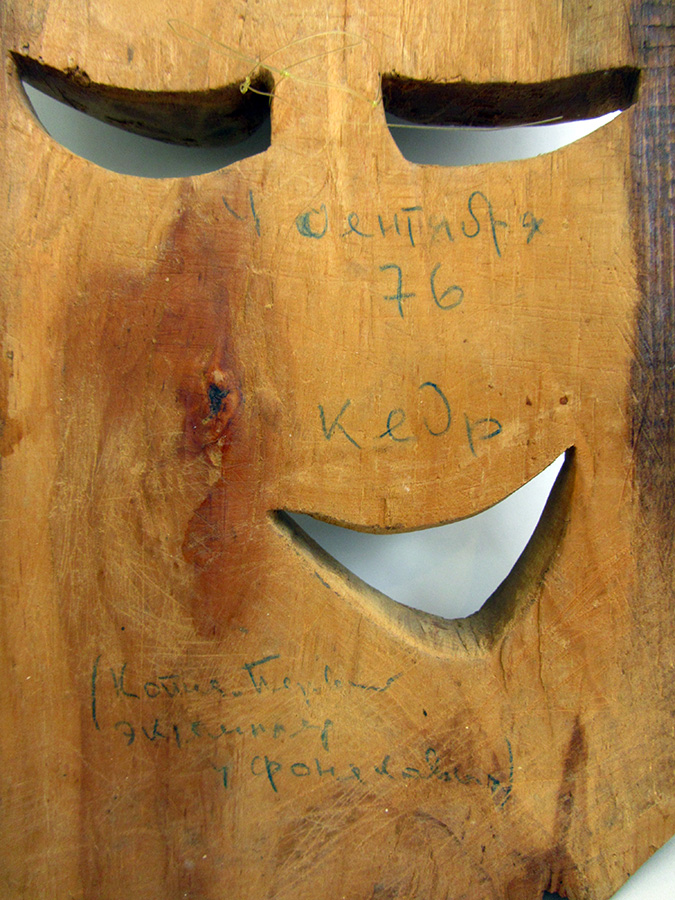 4 сентября
76
кедр
(Копия. Первый
экземпляр
у